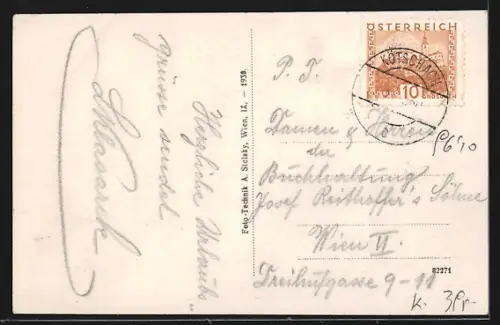 Herzliche Urlaubs
grüsse sendet
Foto-Technik A. Stefsky, Wien, IX. - 1930.
ÖSTERREICH
KÖTSCHACH
10
P. T.
Damen & Herren
der
Buchhaltung
Josef Reithoffer's Söhne
Wien II.
Dreihufgasse 9-11
82271
K. 3Pr